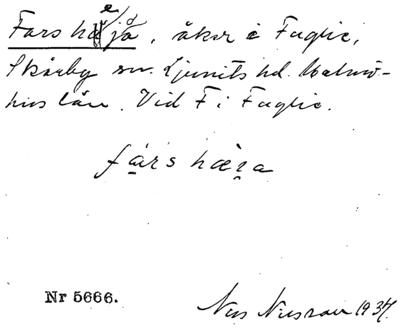 Fars häja, åker i Fuglie,
Skårby sn. Ljunits hd. Malmö-
hus län. Vid F i Fuglie.
fárs hæra
Nr 5666.
Nils Nilsson 1934.